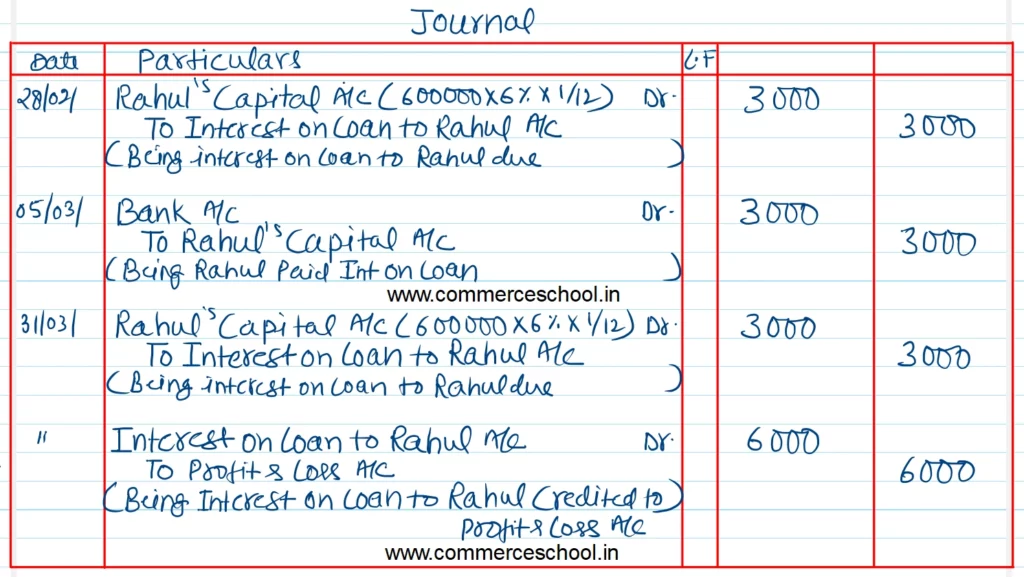 Journal
Date Particulars L.F
28/02/ Rahul's Capital A/c (600000 x 6% x 1/12) Dr. 3000
To Interest on Loan to Rahul A/c 3000
(Being interest on Loan to Rahul due )
05/03/ Bank A/c Dr. 3000
To Rahul's Capital A/c 3000
(Being Rahul Paid Int on Loan )
www.commerceschool.in
31/03/ Rahul's Capital A/c (600000 x 6% x 1/12) Dr. 3000
To Interest on Loan to Rahul A/c 3000
(Being interest on Loan to Rahul due )
" Interest on Loan to Rahul A/c Dr. 6000
To Profit & Loss A/c 6000
(Being Interest on Loan to Rahul Credited to)
Profit & Loss A/c
www.commerceschool.in